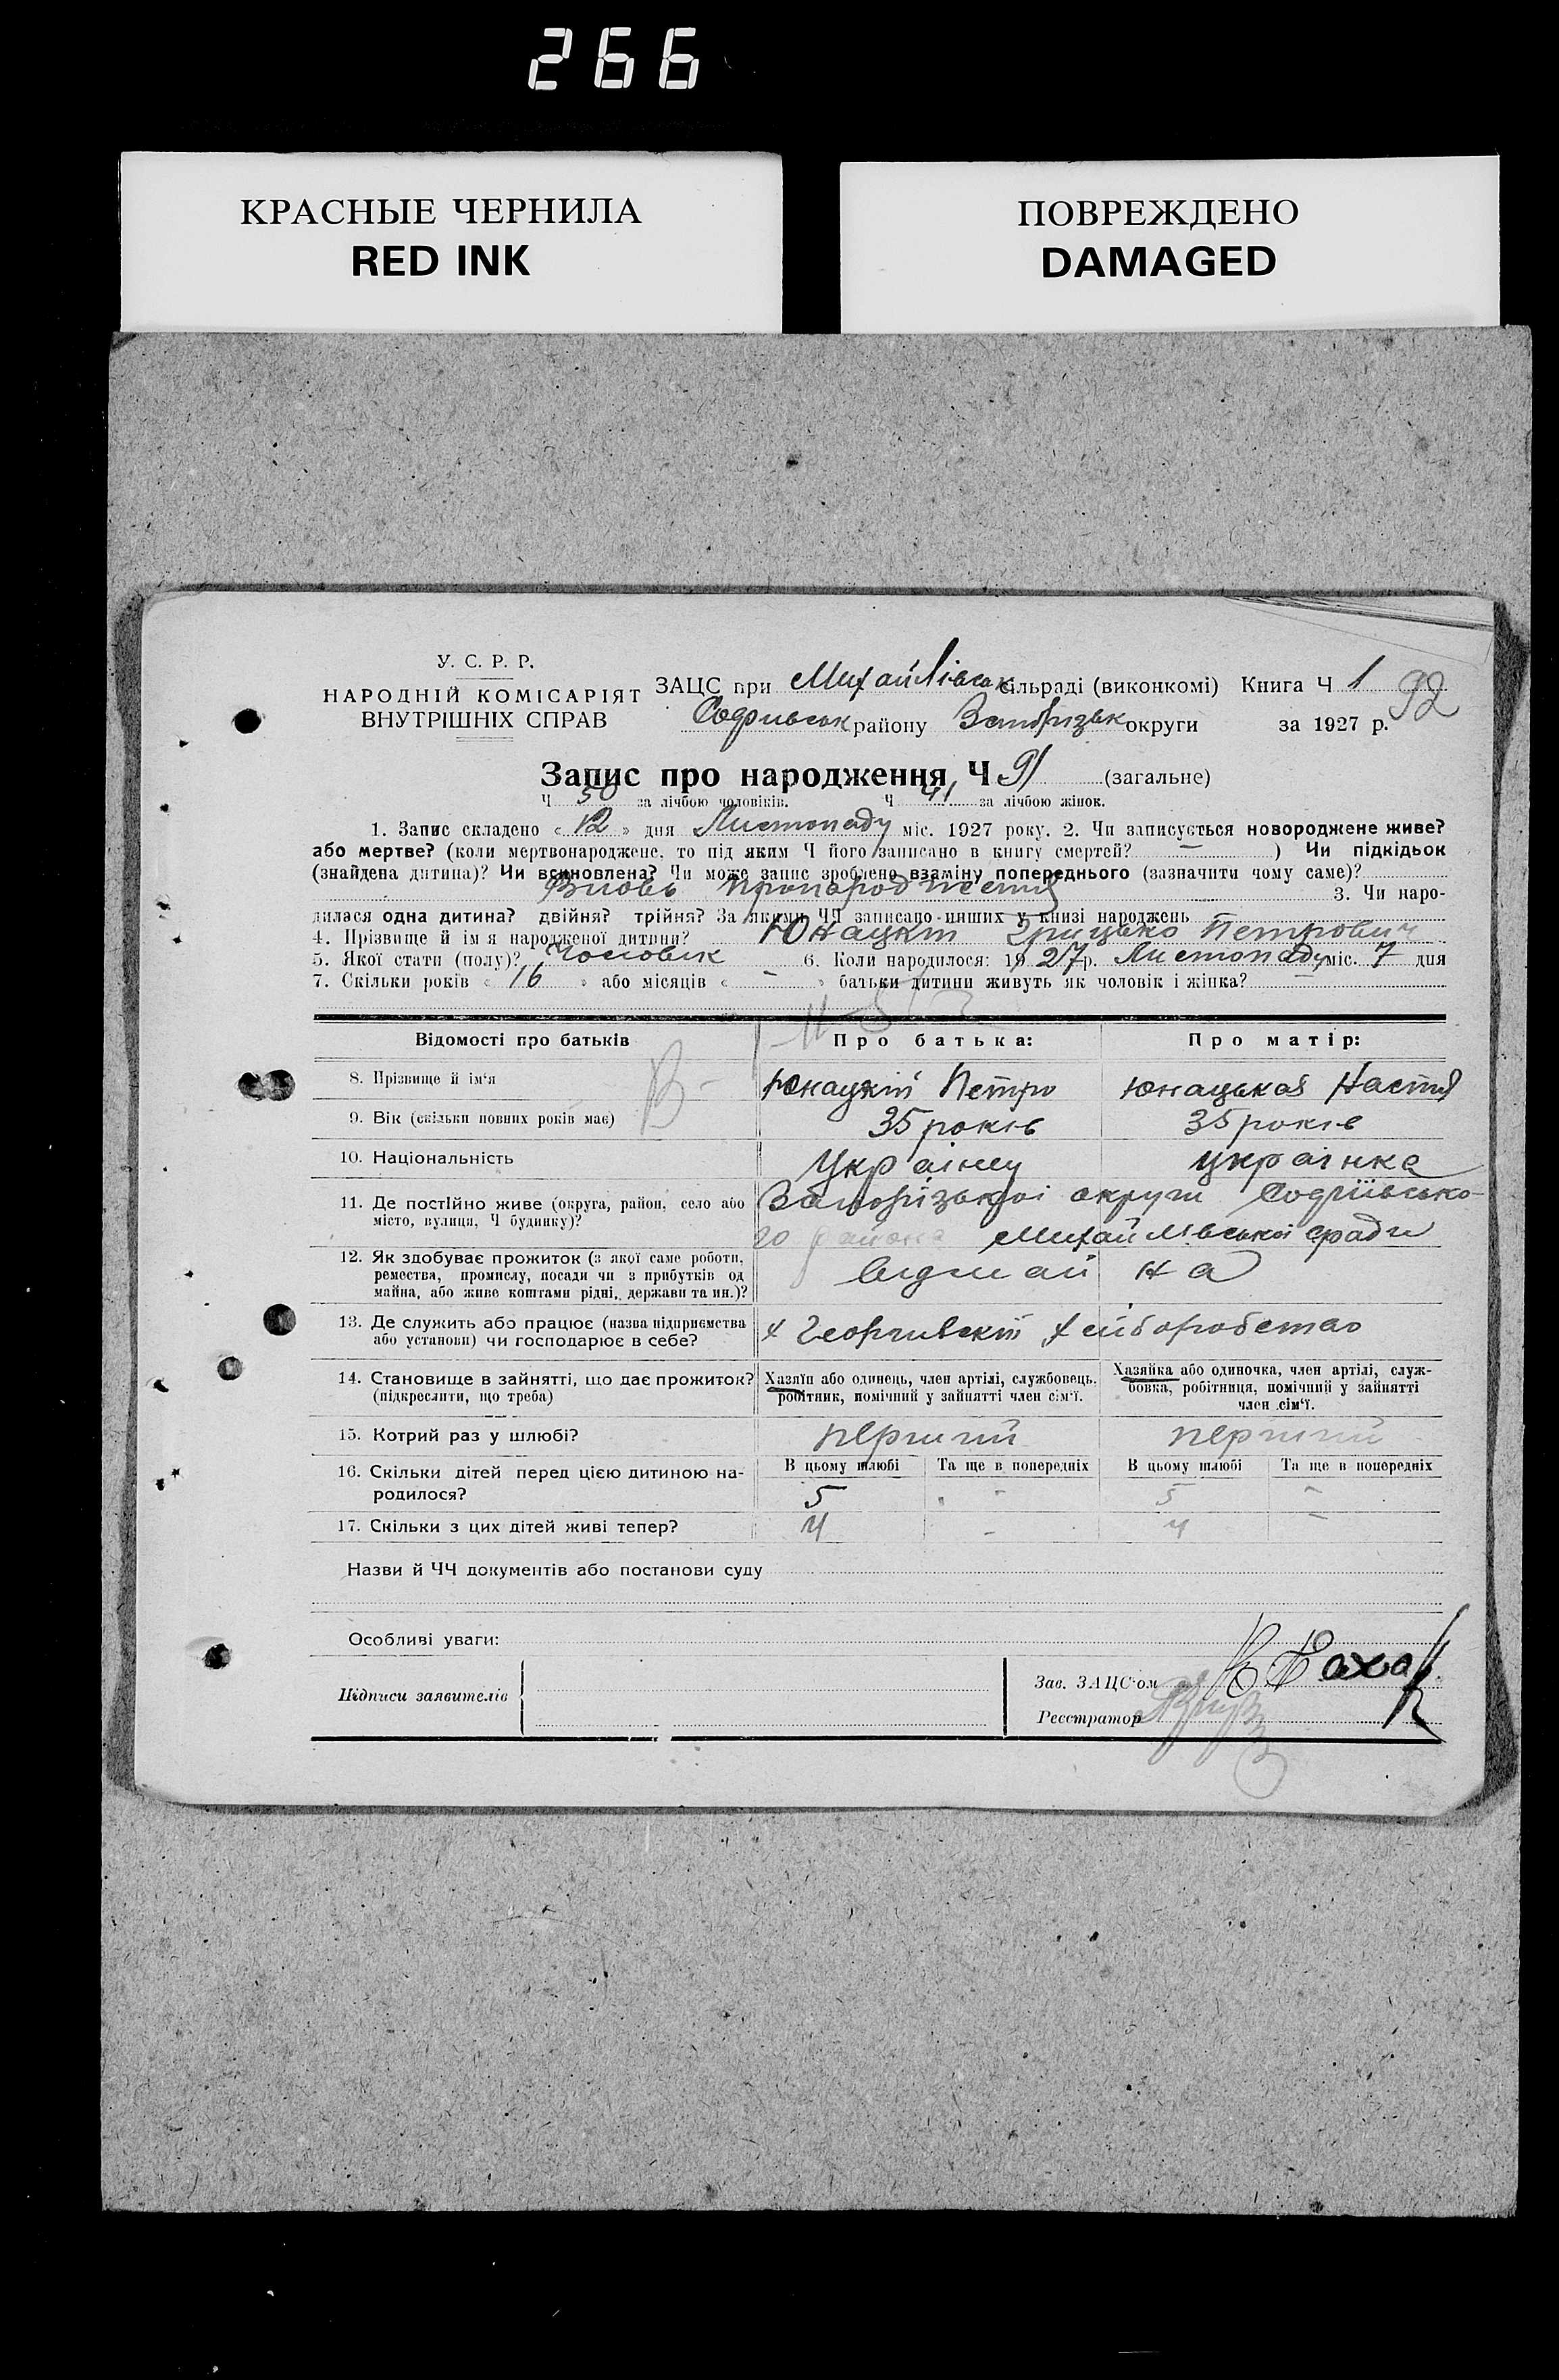 266
КРАСНЫЕ ЧЕРНИЛА
RED INK
ПОВРЕЖДЕНО
DAMAGED
У. С. Р. Р.
НАРОДНІЙ КОМІСАРІЯТ
ВНУТРІШНІХ СПРАВ
ЗАЦС при Михайлівськ сільраді (виконкомі) Книга Ч 1 92
району округи за 1927 р.
Запис про народження Ч 91 (загальне)
Ч 50 за лічбою чоловіків. Ч 41 за лічбою жінок.
1. Запис складено « 12 » дня Листопаду міс. 1927 року. 2. Чи записується новороджене живе?
або мертве? (коли мертвонароджене, то під яким Ч його записано в книгу смертей? — ) Чи підкідьок
(знайдена дитина)? Чи всиновлена? Чи може запис зроблено взаміну попереднього (зазначити чому саме)?
Вновь 3. Чи наро-
дилася одна дитина? двійня? трійня? За якими ЧЧ записано инших у книзі народжень —
4. Прізвище й ім'я народженої дитини? Юнацкий Грицько Петрович
5. Якої стати (полу)? Чоловік 6. Коли народилося: 1927р. Листопаду міс. 7 дня
7. Скільки років « 16 » або місяців « - » батьки дитини живуть як чоловік і жінка? —
Відомості про батьків Про батька: Про матір:
8. Прізвище й ім'я Юнацкий Петро Юнацькая Настя
9. Вік (скільки повних років має) 35 років 35 років
10. Національність Українец українка
11. Де постійно живе (округа, район, село або Запорізької округи Софіївсько-
місто, вулиця, Ч будинку)? го района Михайлівської сради
12. Як здобуває прожиток (з якої саме роботи,
ремества, промислу, посади чи з прибутків од
майна, або живе коштами рідні, держави та ин.)?
13. Де служить або працює (назва підприємства
або установи) чи господарює в себе? хлиборобство
14. Становище в зайнятті, що дає прожиток? Хазяїн або одинець, член артілі, службовець, Хазяйка або одиночка, член артілі, служ-
(підкреслити, що треба) робітник, помічний у зайнятті член сім'ї. бовка, робітниця, помічний у зайнятті
член сім'ї.
15. Котрий раз у шлюбі? перший перший
16. Скільки дітей перед цією дитиною на- В цьому шлюбі Та ще в попередніх В цьому шлюбі Та ще в попередніх
родилося? 5 - 5 -
17. Скільки з цих дітей живі тепер? 4 - 4 -
Назви й ЧЧ документів або постанови суду
Особливі уваги:
Підписи заявителів
Зав. ЗАЦС'ом
Реєстратор